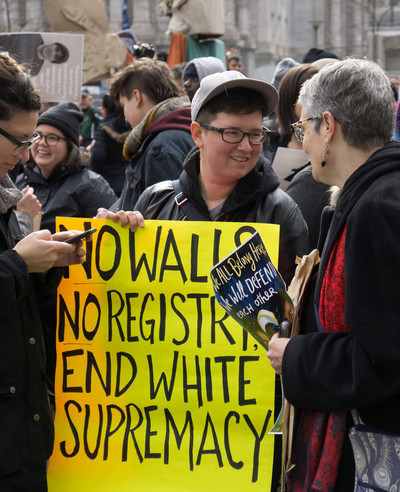 NO WALLS
NO REGISTRY,
END WHITE
SUPREMACY
We ALL Belong Here
We WILL DEFEND
each other